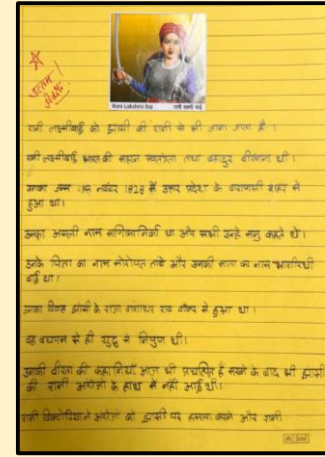 उत्तम!
Rani Lakshmi Bai रानी लक्ष्मी बाई
रानी लक्ष्मीबाई को झांसी की रानी से भी जाना जाता है।
रानी लक्ष्मीबाई भारत की महान स्वतंत्रता तथा बहादुर वीरांगना थी।
उनका जन्म 19 नवंबर 1828 में उत्तर प्रदेश के वाराणसी शहर में
हुआ था।
उनका असली नाम मणिकर्णिका था और सभी उन्हें मनु कहते थे।
उनके पिता का नाम मोरोपंत तांबे और उनकी माता का नाम भागीरथी
बाई था।
उनका विवाह झांसी के राजा गंगाधर राव के हुआ था।
वह बचपन से ही युद्ध में निपुण थी।
उनकी वीरता की कहानियाँ आज भी प्रचलित हैं मरने के बाद भी झांसी
की रानी अंग्रेजों के हाथ में नहीं आई थी।
रानी विक्टोरिया ने अंग्रेजों को झांसी पर हमला करने और रानी